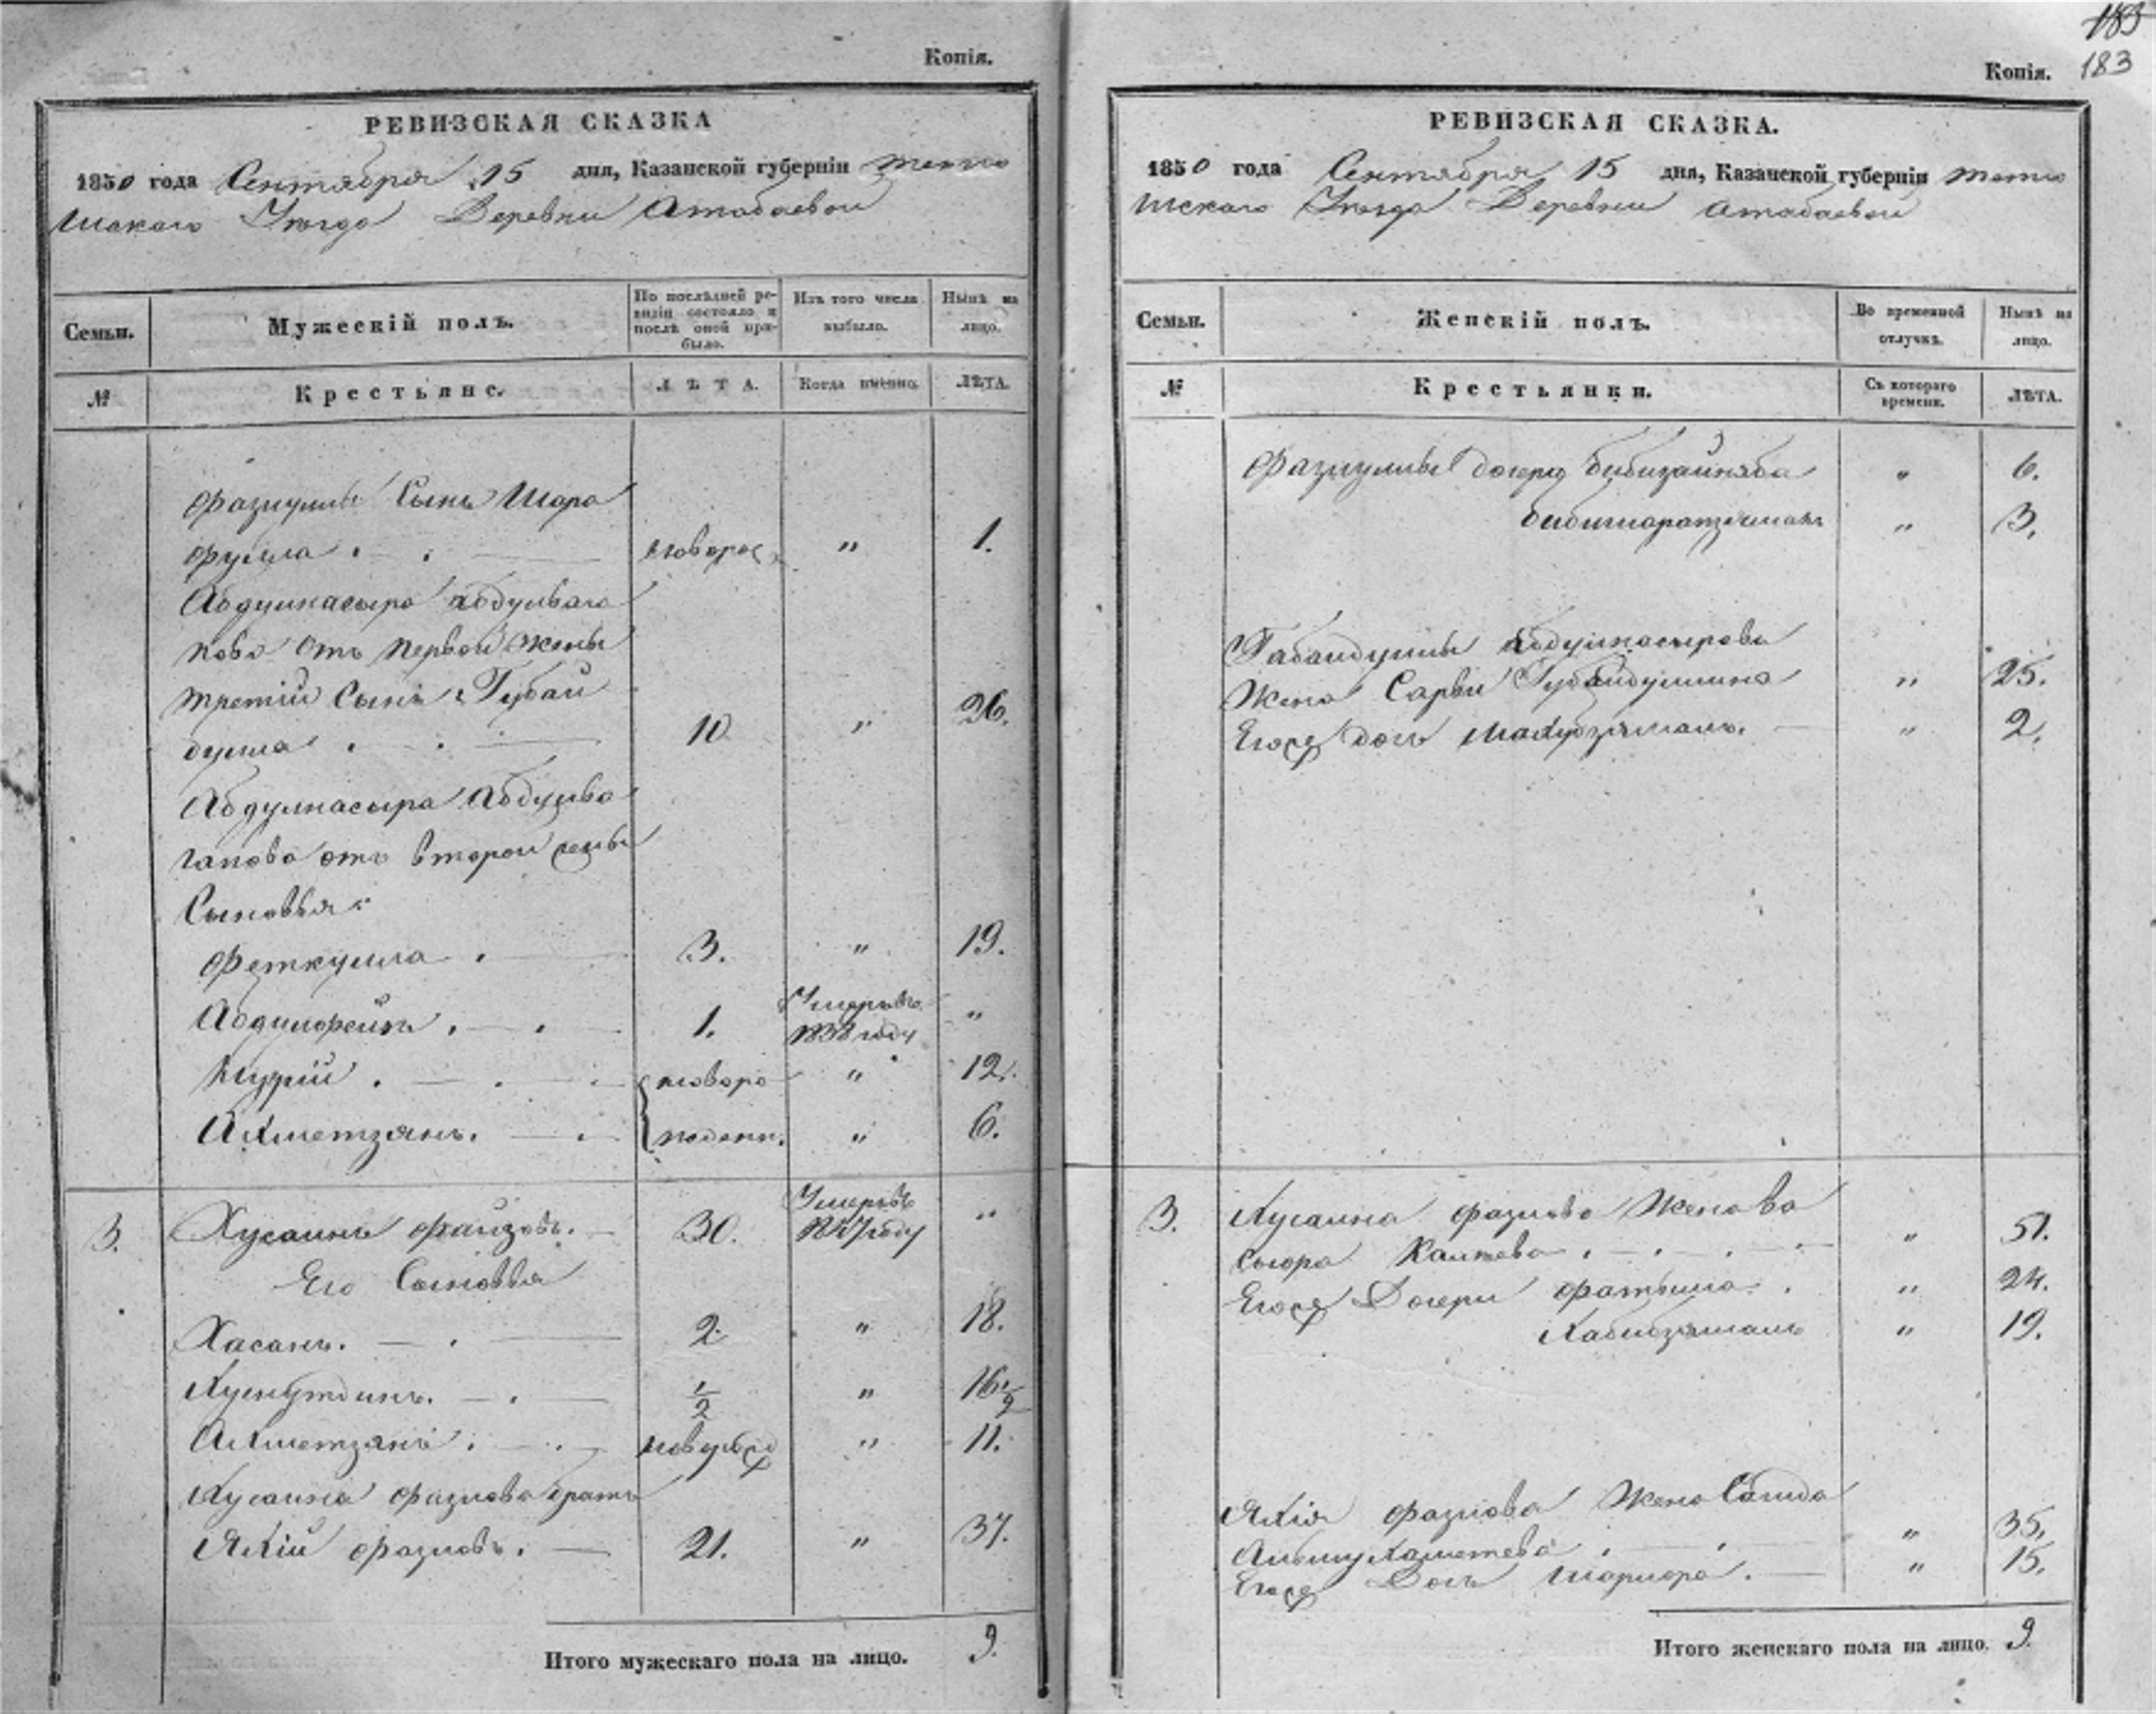 Копія.
РЕВИЗСКАЯ СКАЗКА
1850 года Сентября 15 дня, Казанской губерніи тетю
шскаго Уѣзда Деревни Атабаевой
Семьи.
Мужескій полъ.
По послѣдней ре-
визіи состояло и
послѣ оной при-
было.
Изъ того числа
выбыло.
Нынѣ на
лицо.
№
Крестьяне.
ЛѢТА.
Когда именно.
ЛѢТА.
Фазлуллы Сынъ Шара
фулла . . новорож. " 1.
Абдулнасыра абдулваго
пова отъ первой жены
третій Сынъ Губай
дулла . . 10 " 26.
Абдулнасыра Абдулва
гапова отъ второй жены
Сыновья:
Феткулла . 3. " 19.
Абдулфейзъ . . 1. Умеръ въ "
1838 году
. . . новоро " 12.
Ахметзянъ. . " 6.
3. Хусаинъ файзовъ. 30. Умеръ въ "
1847 году
Его Сыновья
Хасанъ. . 2. " 18.
Хуснутдинъ. . 1/2 " 16 1/2
Ахметзянъ . . " 11.
Хусаина фазлова братъ
Яхій фазловъ. 21. " 37.
Итого мужескаго пола на лицо. 9.
183
Копія. 183
РЕВИЗСКАЯ СКАЗКА.
1850 года Сентября 15 дня, Казанской губерніи тетю
шскаго Уѣзда Деревни Атабаевой
Семьи.
Женскій полъ.
Во временной
отлучкѣ.
Нынѣ на
лицо.
№
Крестьянки.
Съ котораго
времени.
ЛѢТА.
Фазлуллы дочери бибизайнаба " 6.
" 3.
Губайдуллы абдулнасырова
Жена Сарви Губайдуллина " 25.
Егоже дочь Махубзяманъ. " 2.
3. Хусаина фазлова Жена ва
. . . " 51.
Егоже Дочери фатыма . " 24.
Хабибзяманъ " 19.
Яхія фазлова Жена Сагида
Альмухаметева . . " 35.
Егоже Дочь . " 15.
Итого женскаго пола на лицо. 9.